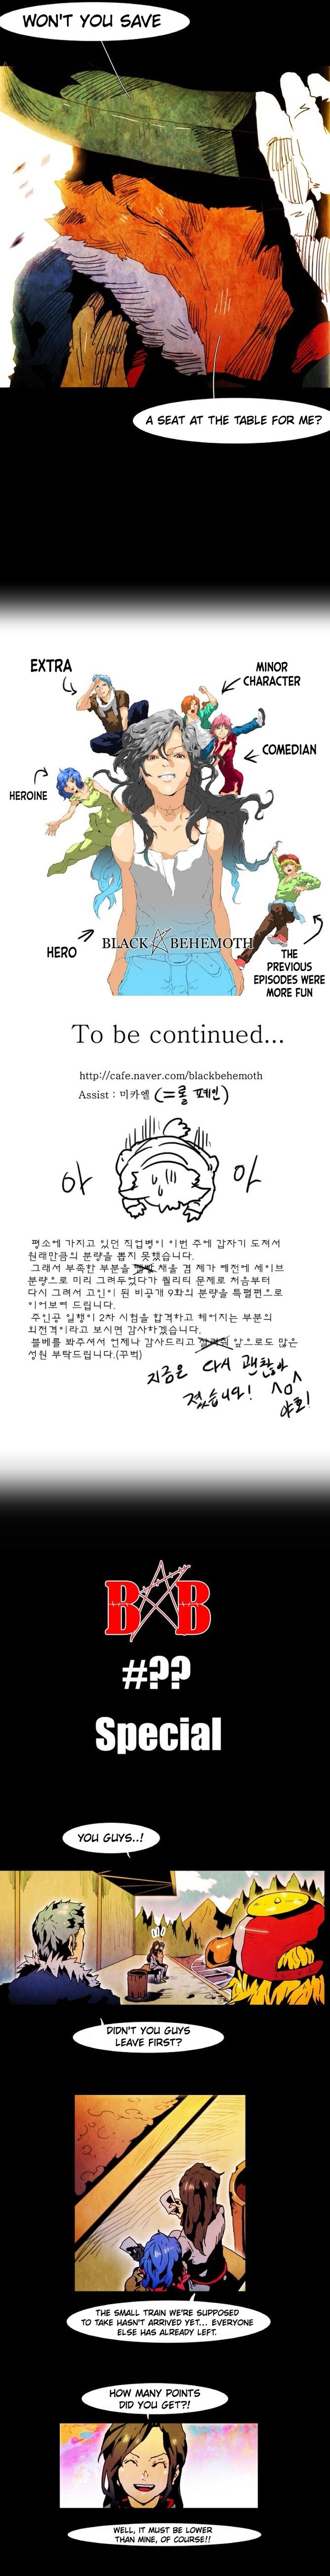 WON'T YOU SAVE
A SEAT AT THE TABLE FOR ME?
EXTRA
MINOR
CHARACTER
COMEDIAN
HEROINE
HERO
BLACK BEHEMOTH
THE
PREVIOUS
EPISODES WERE
MORE FUN
To be continued...
http://cafe.naver.com/blackbehemoth
Assist : 미카엘 (=롤 폐인)
아 아
평소에 가지고 있던 직업병이 이번 주에 갑자기 도져서
원래만큼의 분량을 뽑지 못했습니다.
그래서 부족한 부분을 채울 겸 제가 예전에 세이브
분량으로 미리 그려두었다가 퀄리티 문제로 처음부터
다시 그려서 고인이 된 비공개 9화의 분량을 특별편으로
이어보여 드립니다.
주인공 일행이 2차 시험을 합격하고 헤어지는 부분의
외전격이라고 보시면 감사하겠습니다.
블베를 봐주셔서 언제나 감사드리고 앞으로도 많은
성원 부탁드립니다.(꾸벅)
지금은 다시 괜찮아
졌습니다! ^o^
야호!
B B
#??
Special
YOU GUYS..!
DIDN'T YOU GUYS
LEAVE FIRST?
THE SMALL TRAIN WE'RE SUPPOSED
TO TAKE HASN'T ARRIVED YET... EVERYONE
ELSE HAS ALREADY LEFT.
HOW MANY POINTS
DID YOU GET?!
WELL, IT MUST BE LOWER
THAN MINE, OF COURSE!!